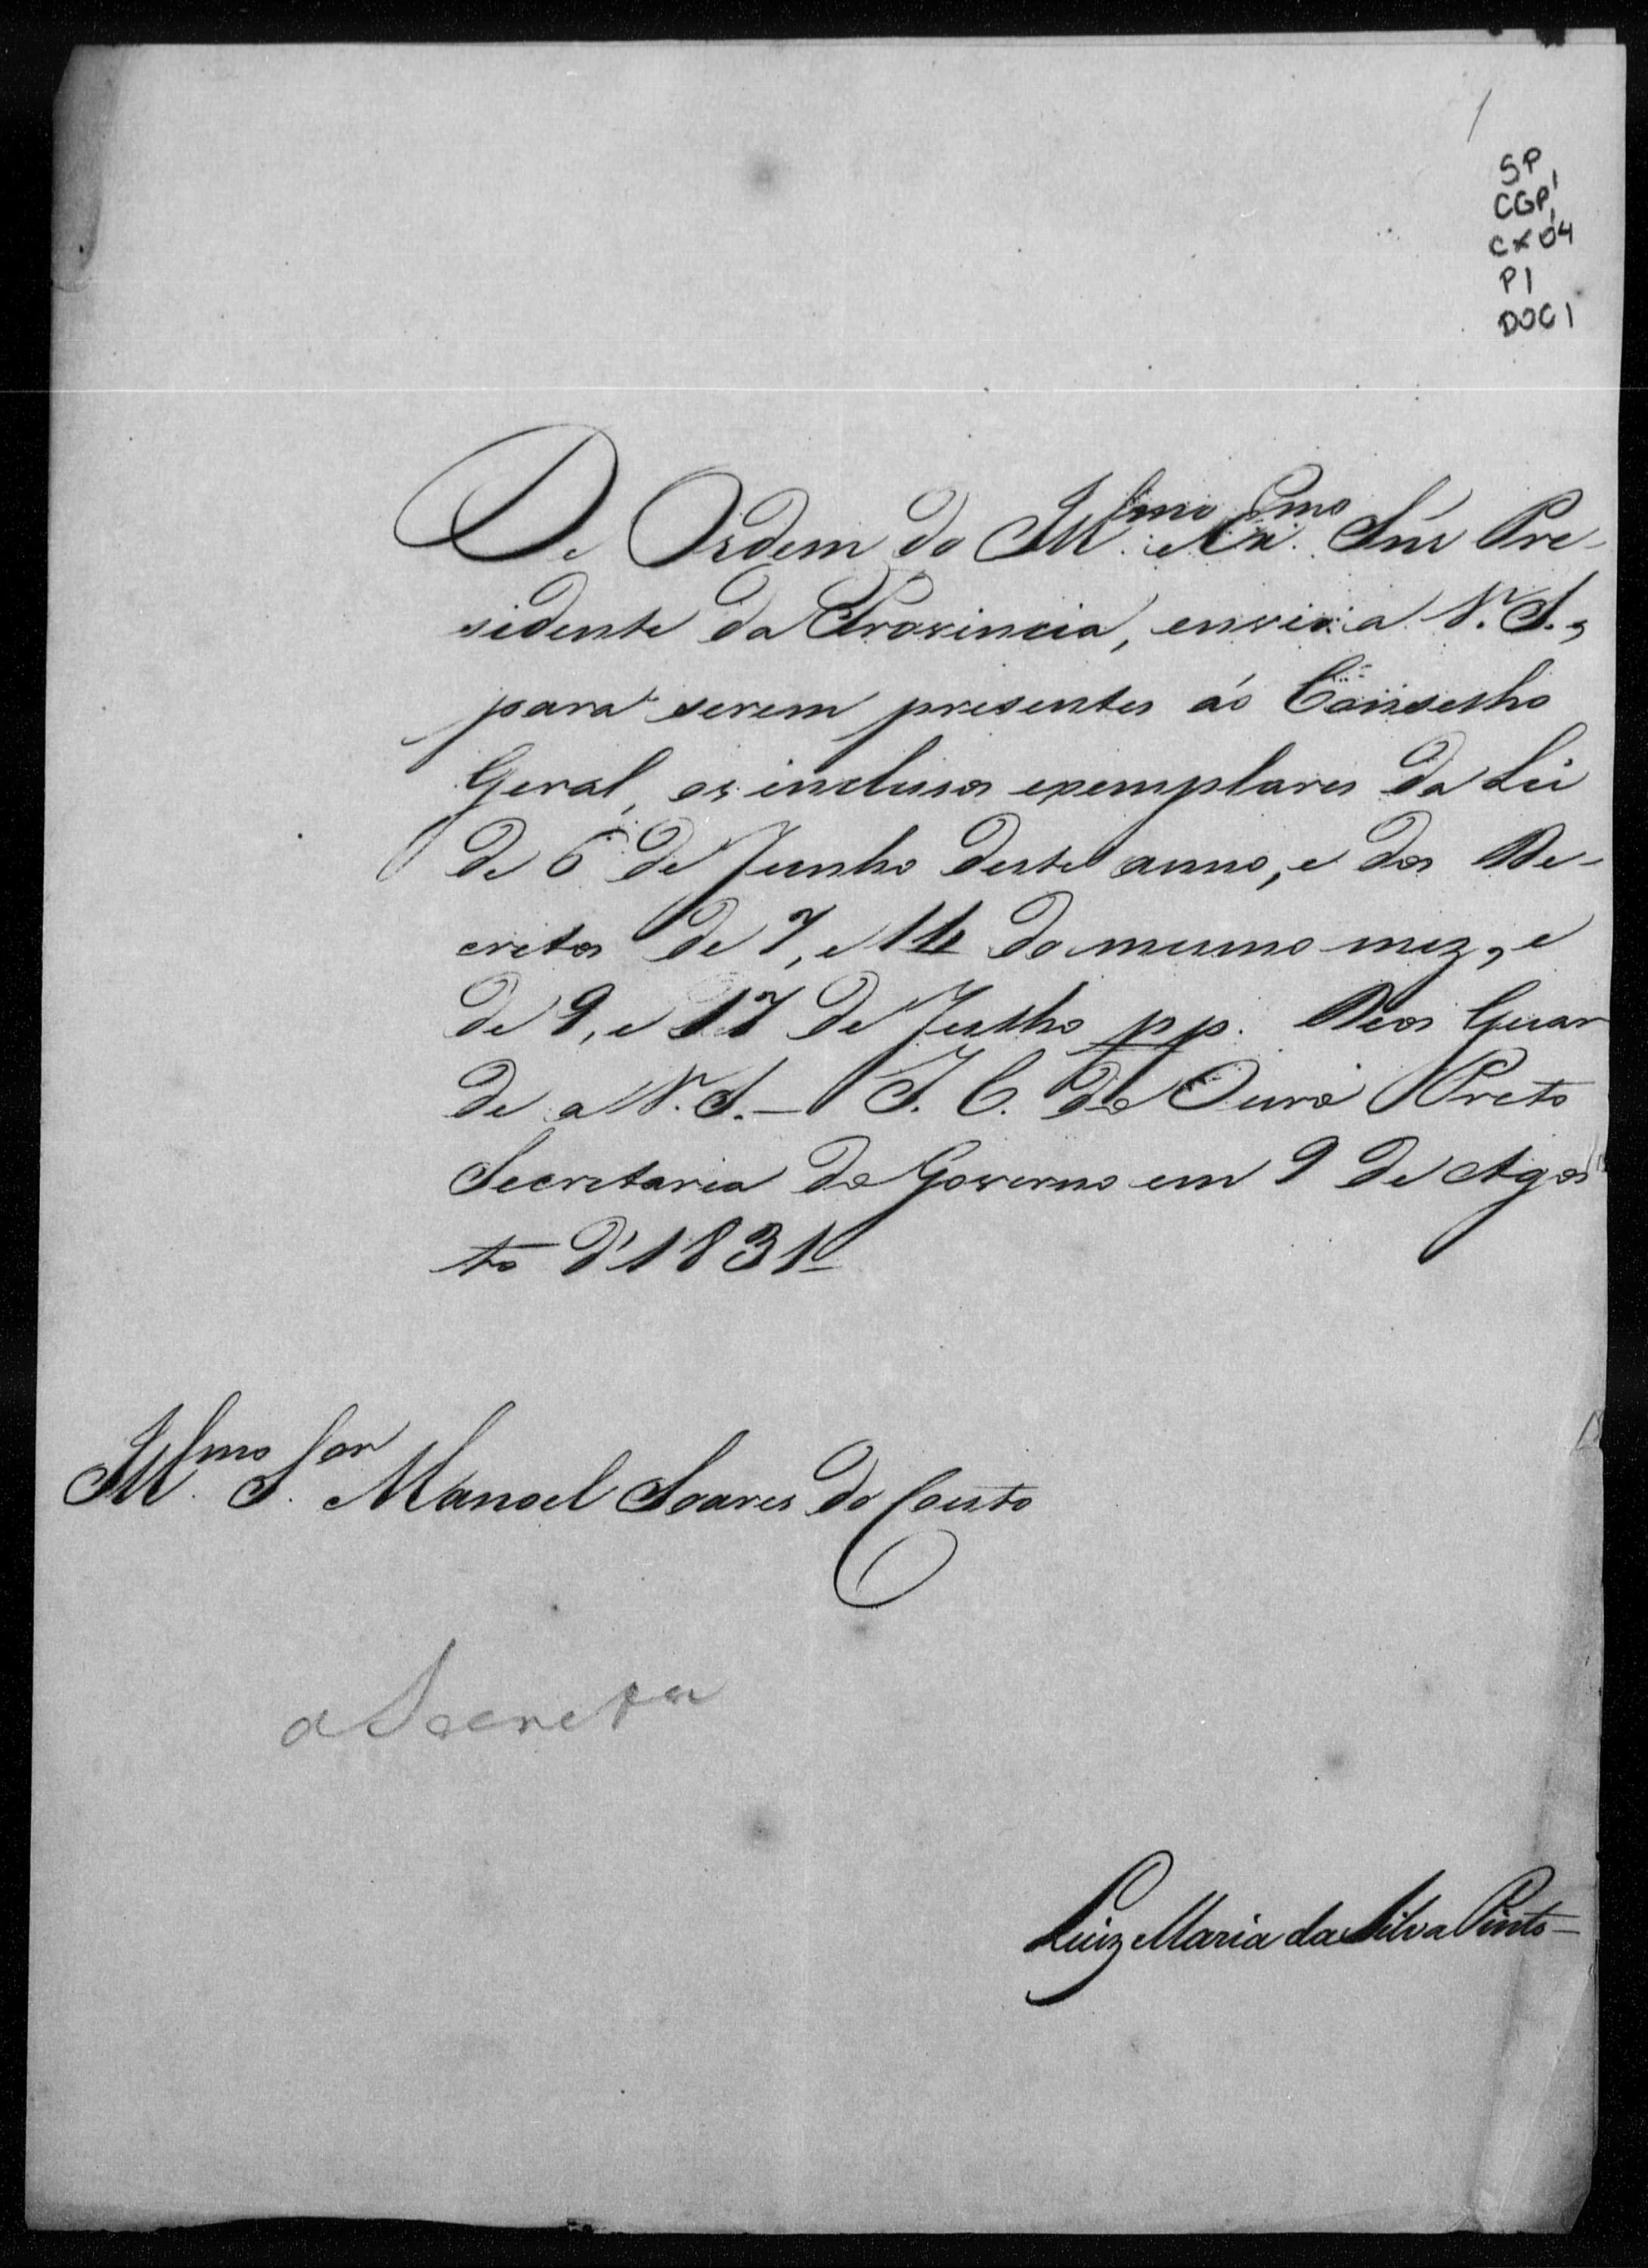 1
SP
CGP1
CX04
P1
DOC1
De Ordem do Illmo. e Exmo. Snr Pre-
sidente da Provincia, envio a V. S.,
para serem presentes ao Conselho
Geral, os inclusos exemplares da Lei
de 6 de Junho deste anno, e dos De-
cretos de 7, e 14 do mesmo mez, e
de 9, e 17 de Julho pp. Deos Guar
de a V. S. — I. C. do Ouro Preto
Secretaria do Governo em 9 de Agos
to d'1831
Illmo. Sor. Manoel Soares do Couto
a Secreta
Luiz Maria da Silva Pinto—